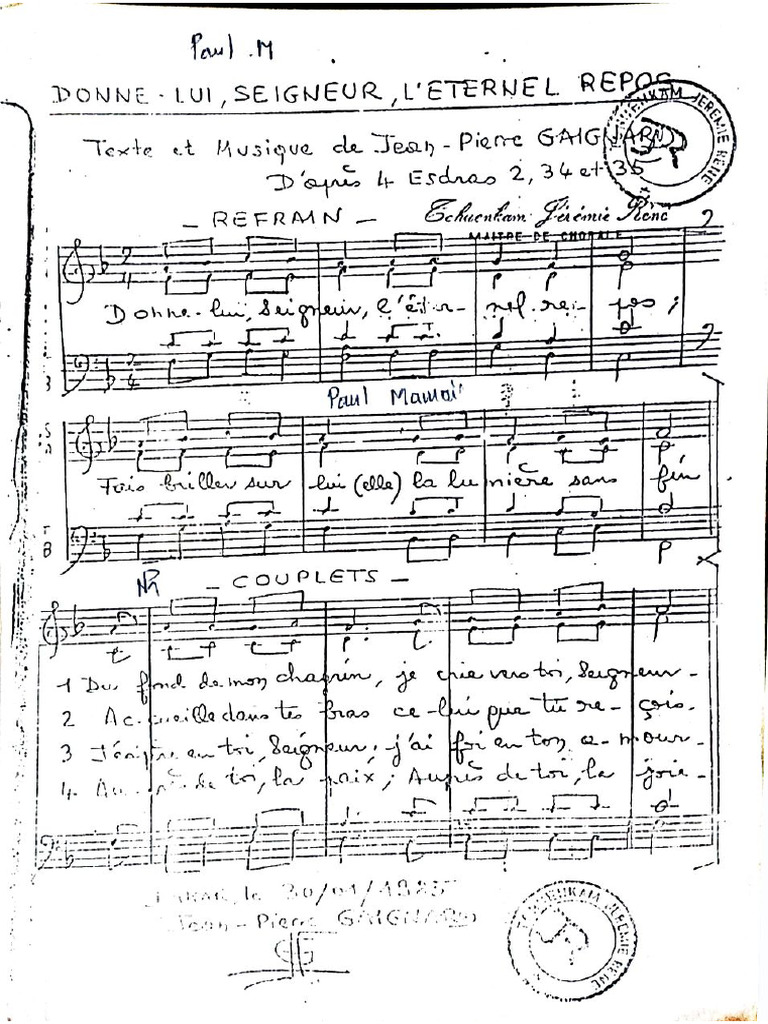 Paul .M
DONNE-LUI, SEIGNEUR, L'ETERNEL REPOS
Texte et Musique de Jean-Pierre GAIGNARD
D'après 4 Esdras 2, 34 et 35
TCHUENKAM JEREMIE RENE
- REFRAIN -
Tchuenkam Jérémie René
MAITRE DE CHORALE
Donne-lui, Seigneur, l'éter- nel re- pos;
B
Paul Mamai
S
A
Fais briller sur lui (elle) la lumière sans fin
T
B
- COUPLETS -
1 Du fond de mon chagrin, je crie vers toi, Seigneur-
2 Ac-cueille dans tes bras ce-lui que tu re-çois.
3 J'espère en toi, Seigneur, j'ai foi en ton a-mour-
4 Auprès de toi, la paix; Auprès de toi, la joie-
Dakar, le 30/01/1985
Jean-Pierre GAIGNARD
JPG
TCHUENKAM JEREMIE RENE